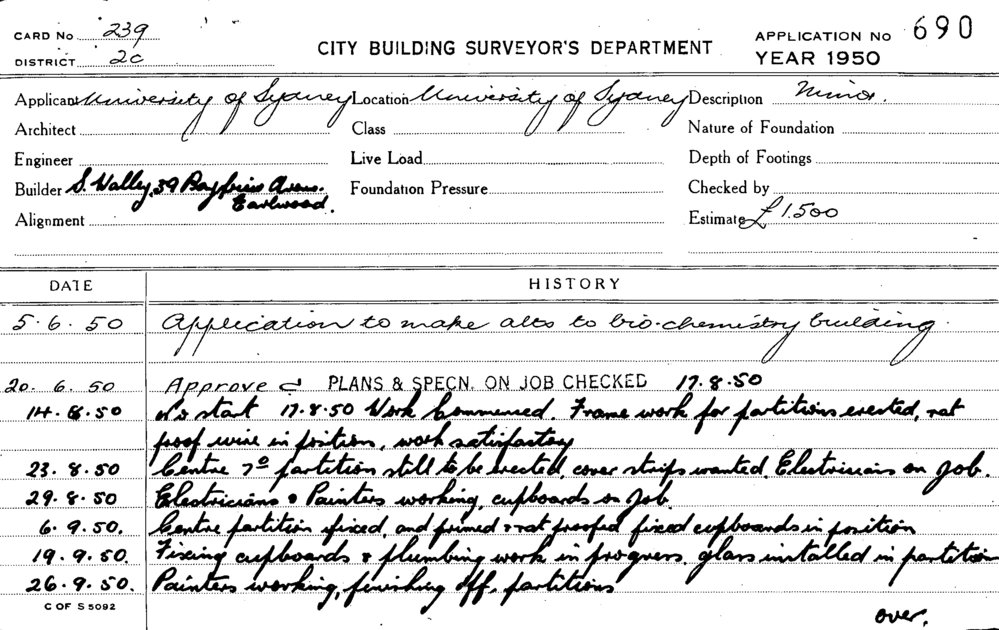 CARD NO 239
DISTRICT 2C
CITY BUILDING SURVEYOR'S DEPARTMENT
APPLICATION NO 690
YEAR 1950
Applicant University of Sydney Location University of Sydney Description Minor.
Architect Class Nature of Foundation
Engineer Live Load Depth of Footings
Builder S. Walley, 39 Avenue. Foundation Pressure Checked by
Earlwood.
Alignment Estimate £1.500
DATE HISTORY
5.6.50 Application to make alts to bio-chemistry building.
20.6.50 Approved PLANS & SPECN. ON JOB CHECKED 17.8.50
14.8.50 No start 17.8.50 Work Commenced. Frame work for partitions erected, rat
proof wire in position, work satisfactory
23.8.50 Centre partition still to be erected, cover strips wanted, Electricians on Job.
29.8.50 Electricians & Painters working, cupboards on Job.
6.9.50. Centre partition fixed, and primed & rat proofed fixed cupboards in position
19.9.50. Fixing cupboards & plumbing work in progress, glass installed in partition
26.9.50. Painters working, finishing off, partitions
C OF S 5092
over.